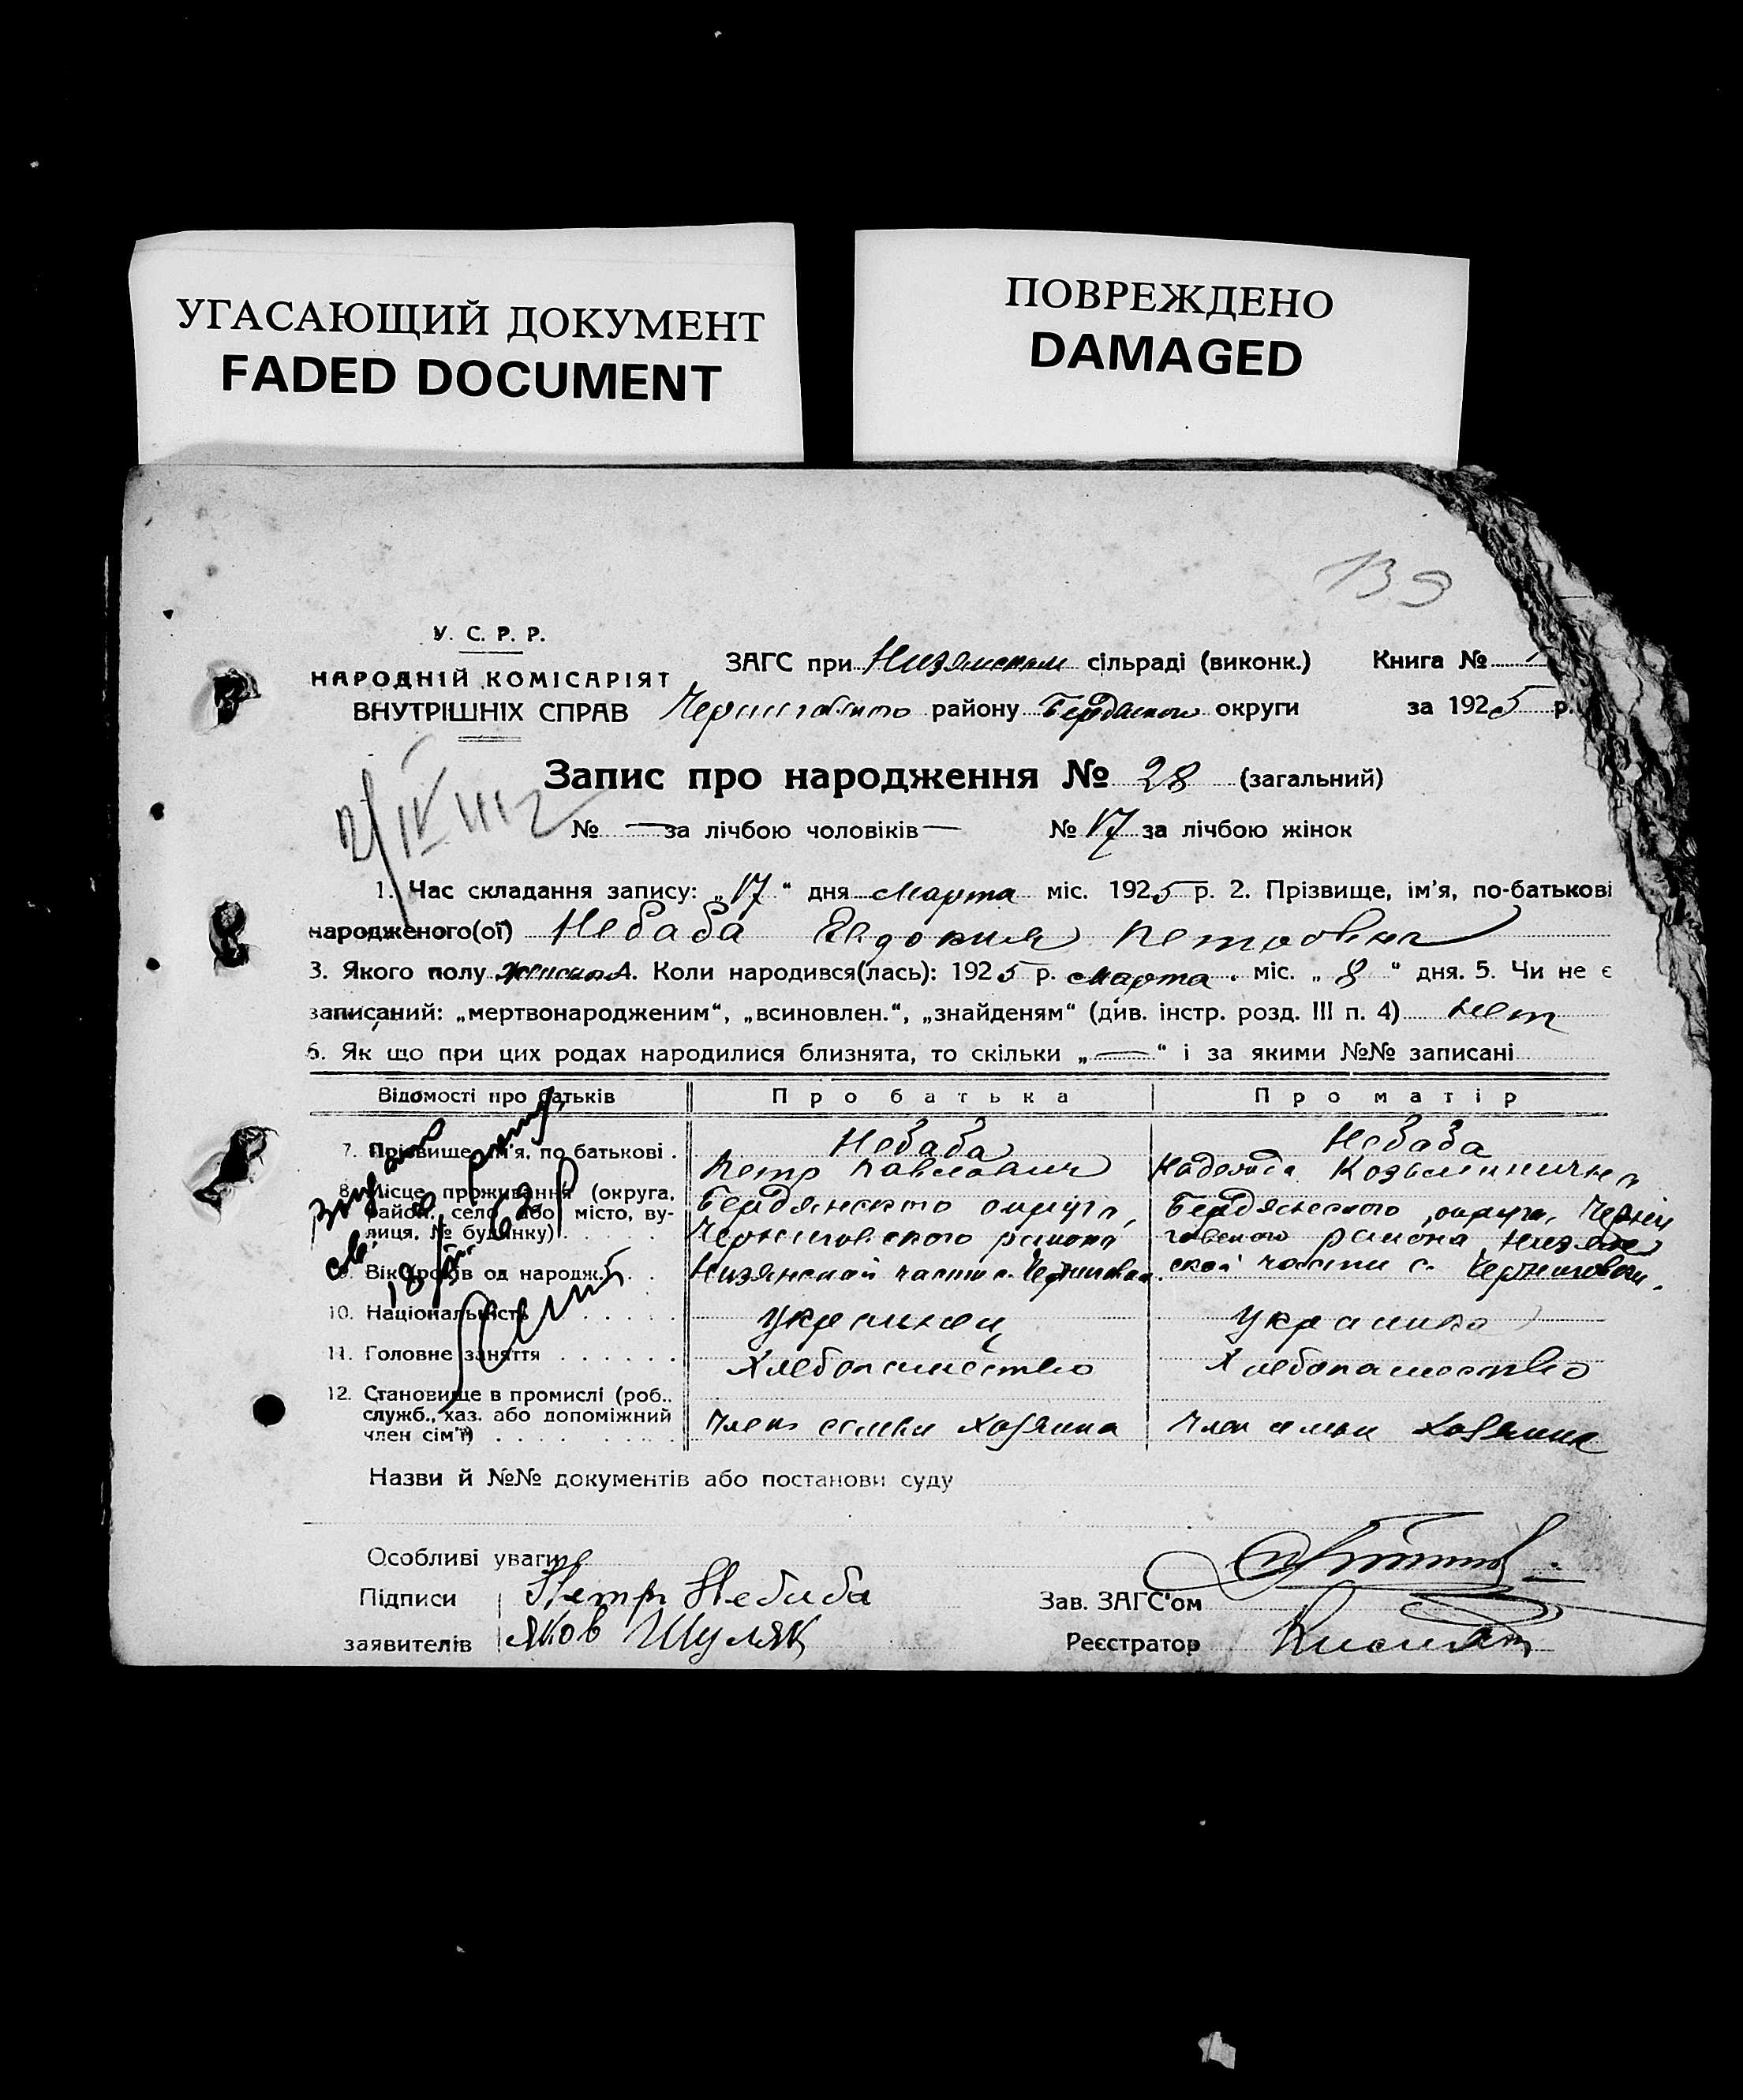 УГАСАЮЩИЙ ДОКУМЕНТ
FADED DOCUMENT
ПОВРЕЖДЕНО
DAMAGED
139
У. С. Р. Р.
НАРОДНІЙ КОМІСАРІЯТ
ВНУТРІШНІХ СПРАВ
ЗАГС при Низянском сільраді (виконк.) Книга №
Черниговского району Бердянского округи за 1925 р.
Запис про народження № 28 (загальний)
№ — за лічбою чоловіків — № 17 за лічбою жінок
1. Час складання запису: „17“ дня Марта міс. 1925 р. 2. Прізвище, ім'я, по-батькові
народженого(ої) Небаба Евдокия Петровна
3. Якого полу женского 4. Коли народився(лась): 1925 р. Марта міс. „8“ дня. 5. Чи не є
записаний: „мертвонародженим“, „всиновлен.“, „знайденям“ (див. інстр. розд. III п. 4) нет
6. Як що при цих родах народилися близнята, то скільки „—“ і за якими №№ записані
Відомості про батьків Про батька Про матір
7. Прізвище, ім'я, по батькові . Небаба Небаба
Петр Павлович Надежда Козьминична
8. Місце проживання (округа, район, село або місто, вулиця, № будинку) Бердянского округа, Бердянского округа, Черни
Черниговского района говского района Низян
Низянской части с. Черниговки ской части с. Черниговки.
9. Вік (років од народж.)
10. Національність украинец украинка
11. Головне заняття Хлебопашество Хлебопашество
12. Становище в промислі (роб.,
служб., хаз. або допоміжний
член сім'ї) Член семьи хозяина Член семьи хозяина
Назви й №№ документів або постанови суду
Особливі уваги
Підписи Петр Небаба Зав. ЗАГС'ом
заявителів Яков Шуляк Реєстратор